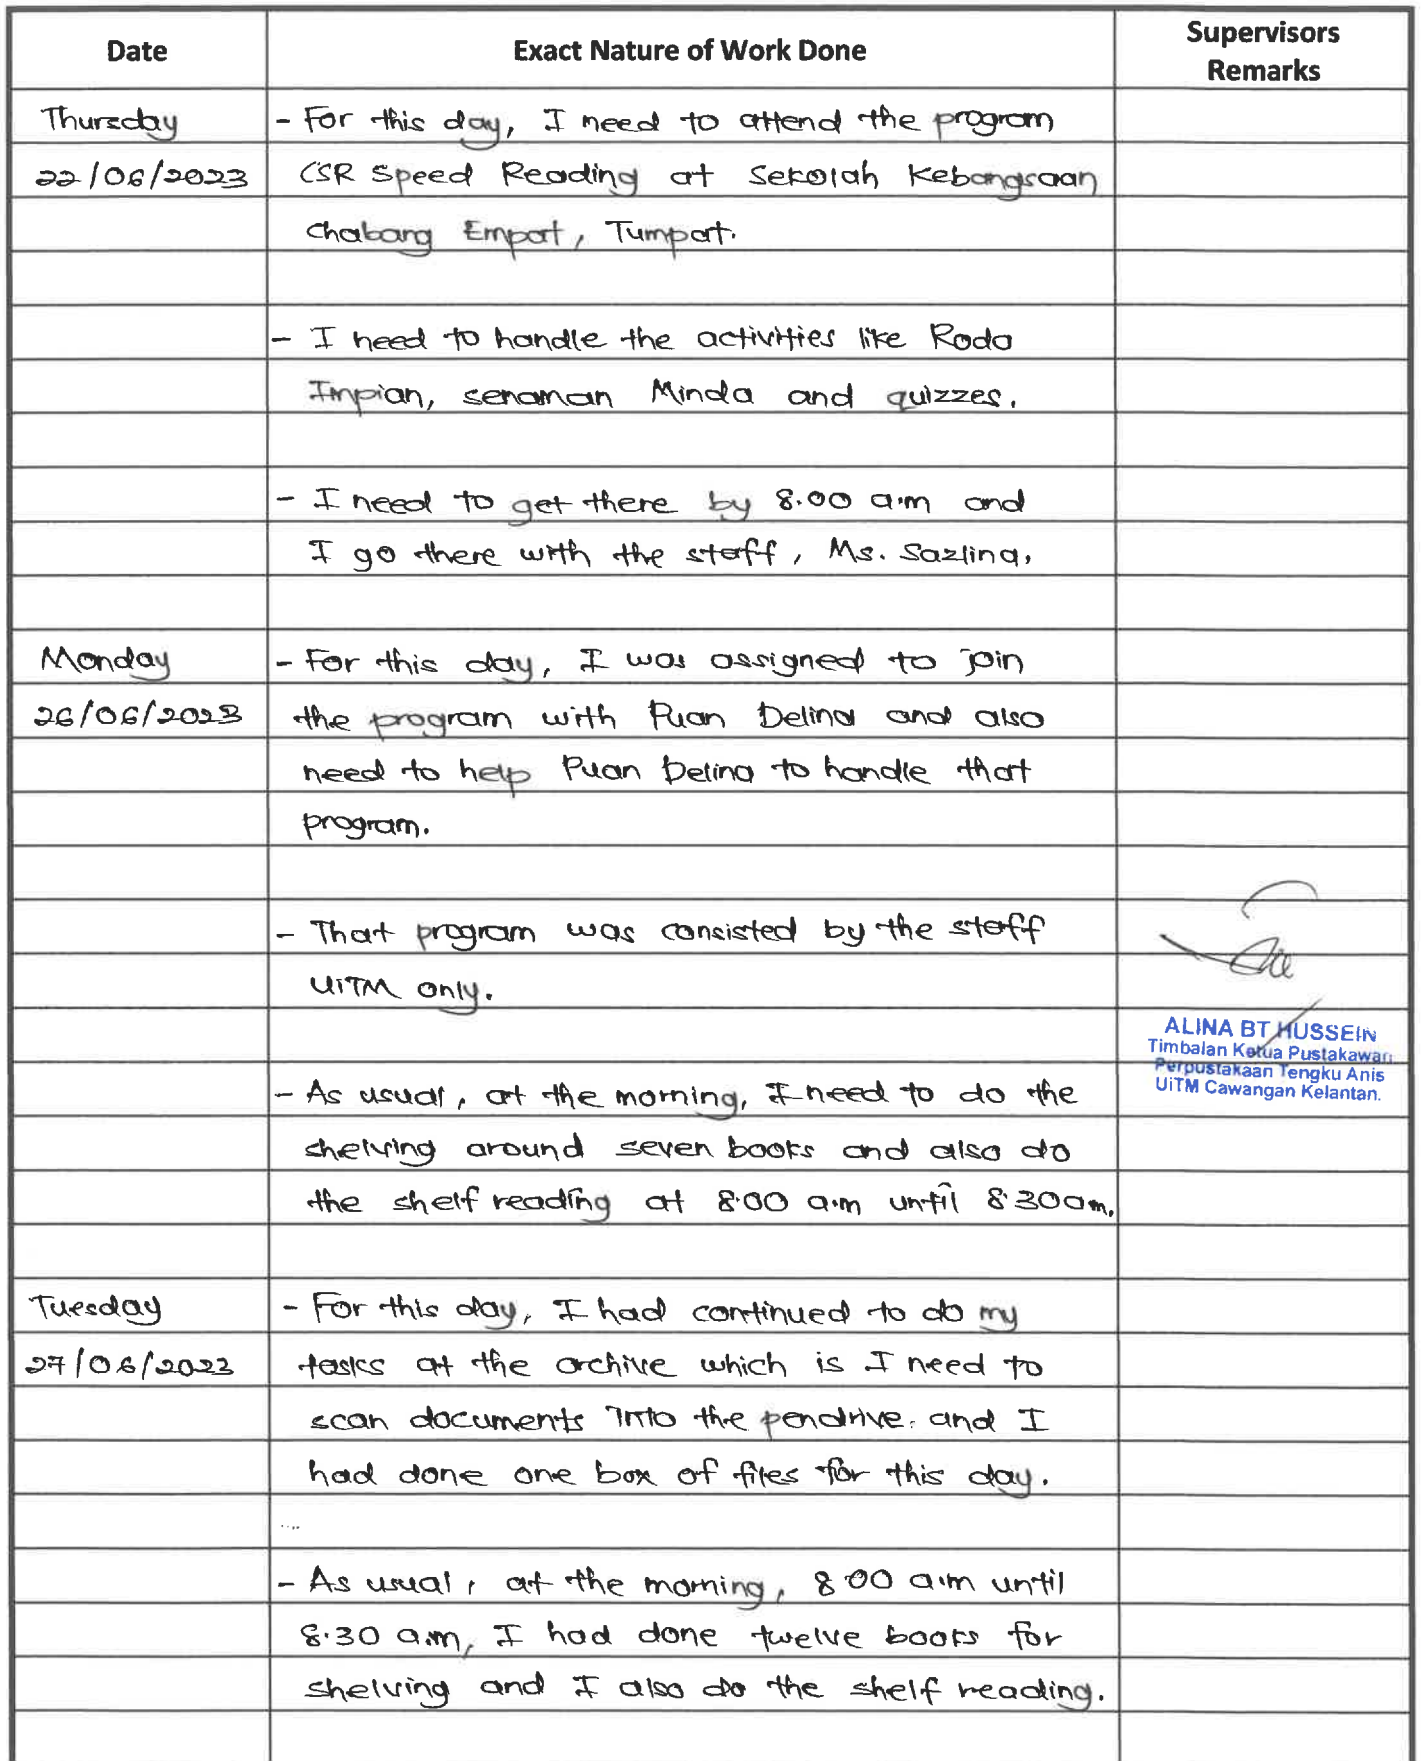 Date
Exact Nature of Work Done
Supervisors
Remarks
Thursday
- For this day, I need to attend the program
22/06/2023
CSR Speed Reading at Sekolah Kebangsaan
Chabang Empat, Tumpat.
- I need to handle the activities like Roda
Impian, senaman Minda and quizzes.
- I need to get there by 8.00 a.m and
I go there with the staff, Ms. Sazlina.
Monday
- For this day, I was assigned to join
26/06/2023
the program with Puan Delina and also
need to help Puan Delina to handle that
program.
- That program was consisted by the staff
UiTM only.
ALINA BT HUSSEIN
Timbalan Ketua Pustakawan
Perpustakaan Tengku Anis
UiTM Cawangan Kelantan.
- As usual, at the morning, I need to do the
shelving around seven books and also do
the shelf reading at 8.00 a.m until 8.30am.
Tuesday
- For this day, I had continued to do my
27/06/2023
tasks at the archive which is I need to
scan documents into the pendrive. and I
had done one box of files for this day.
- As usual, at the morning, 8.00 a.m until
8.30 a.m, I had done twelve books for
shelving and I also do the shelf reading.